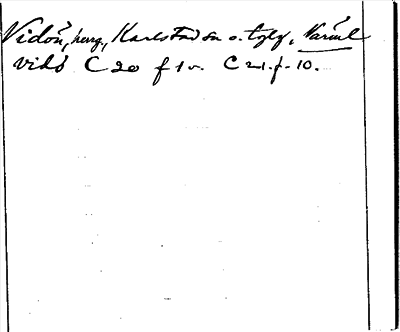 Vidön, herrg., Karlstad sn o. tglg, Värml
vidö C 20 f 1 v. C 21. f. 10.